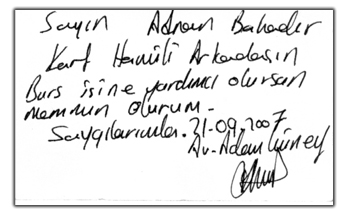 Sayın Adnan Bahadır
Kart Hamili Arkadaşın
Burs işine yardımcı olursan
memnun olurum.
Saygılarımla. 21.09.2007
Av. Adem Güney